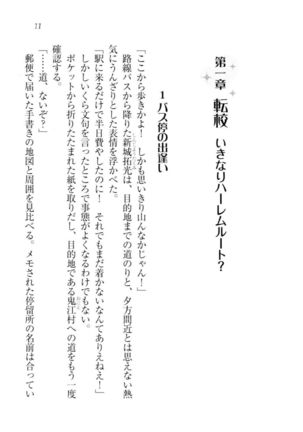 第一章 転校 いきなりハーレムルート？
1 バス停の出逢い
「ここから歩きかよ！　しかも思いきり山んなかじゃん！」
路線バスから降りた新城拓光は、目的地までの道のりと、夕方間近とは思えない熱
気にうんざりとした表情を浮かべた。
「駅に来るだけで半日費やしたのに！　それでもまだ着かないなんてありえねえ！」
しかしいくら文句を言ったところで事態がよくなるわけでもない。
ポケットから折りたたまれた紙を取りだし、目的地である鬼江村への道をもう一度
確認する。
「……道、ないぞ？」
郵便で届いた手書きの地図と周囲を見比べる。メモされた停留所の名前は合ってい
11